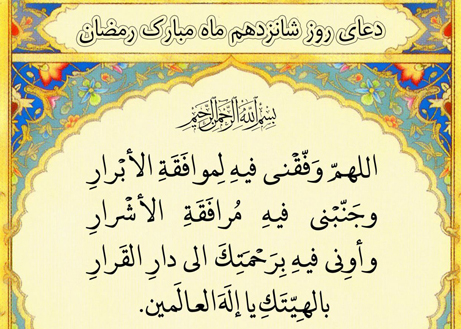 دعای روز شانزدهم ماه مبارک رمضان
بِسْمِ اللَّهِ الرَّحْمَنِ الرَّحِيمِ
اللهمّ وَفّقْنی فیهِ لِموافَقَةِ الأبْرارِ
وجَنّبْنی فیهِ مُرافَقَةِ الأشْرارِ
وأوِنی فیهِ بِرَحْمَتِكَ الی دارِ القَرارِ
بالهِیّتَكِ یا إلَهَ العالَمین.